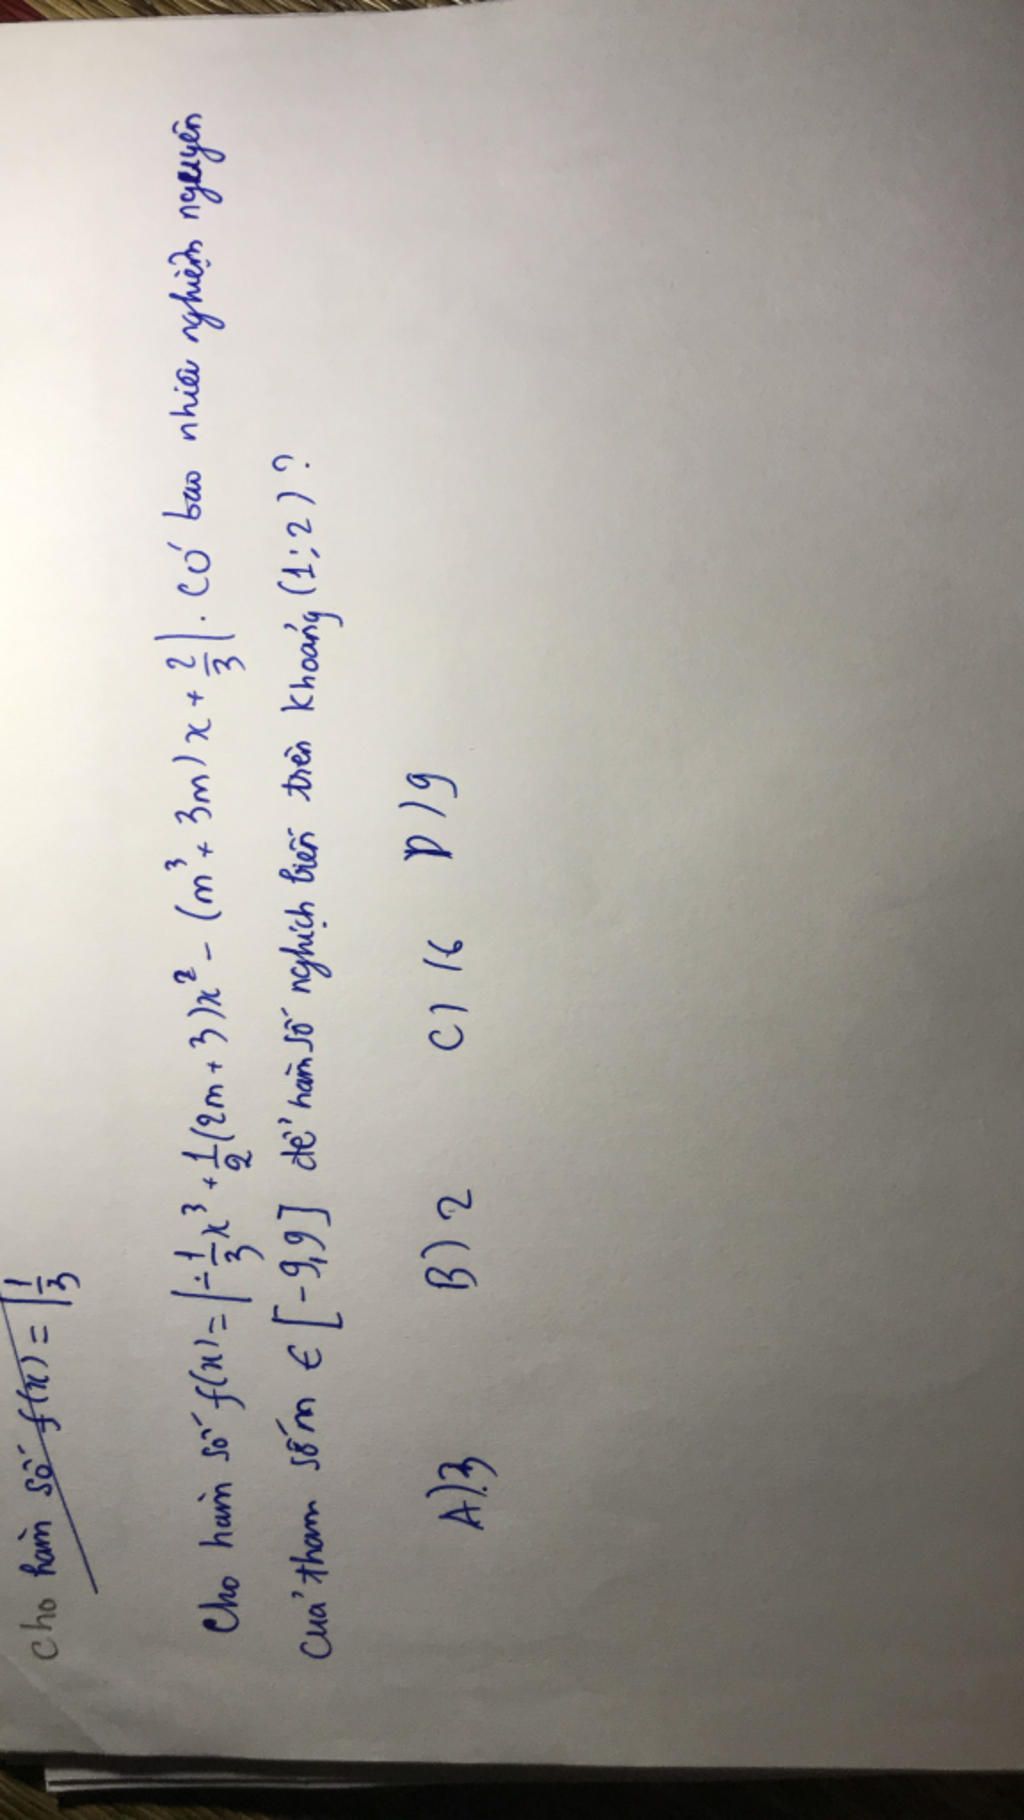 cho hàm số f(x) = |1/3
Cho hàm số f(x) = |-1/3x³ + 1/2(2m+3)x² - (m³+3m)x + 2/3|. Có bao nhiêu nghiệm nguyên
của tham số m ∈ [-9,9] để hàm số nghịch biến trên khoảng (1;2)?
A) 3 B) 2 C) 16 D) 9